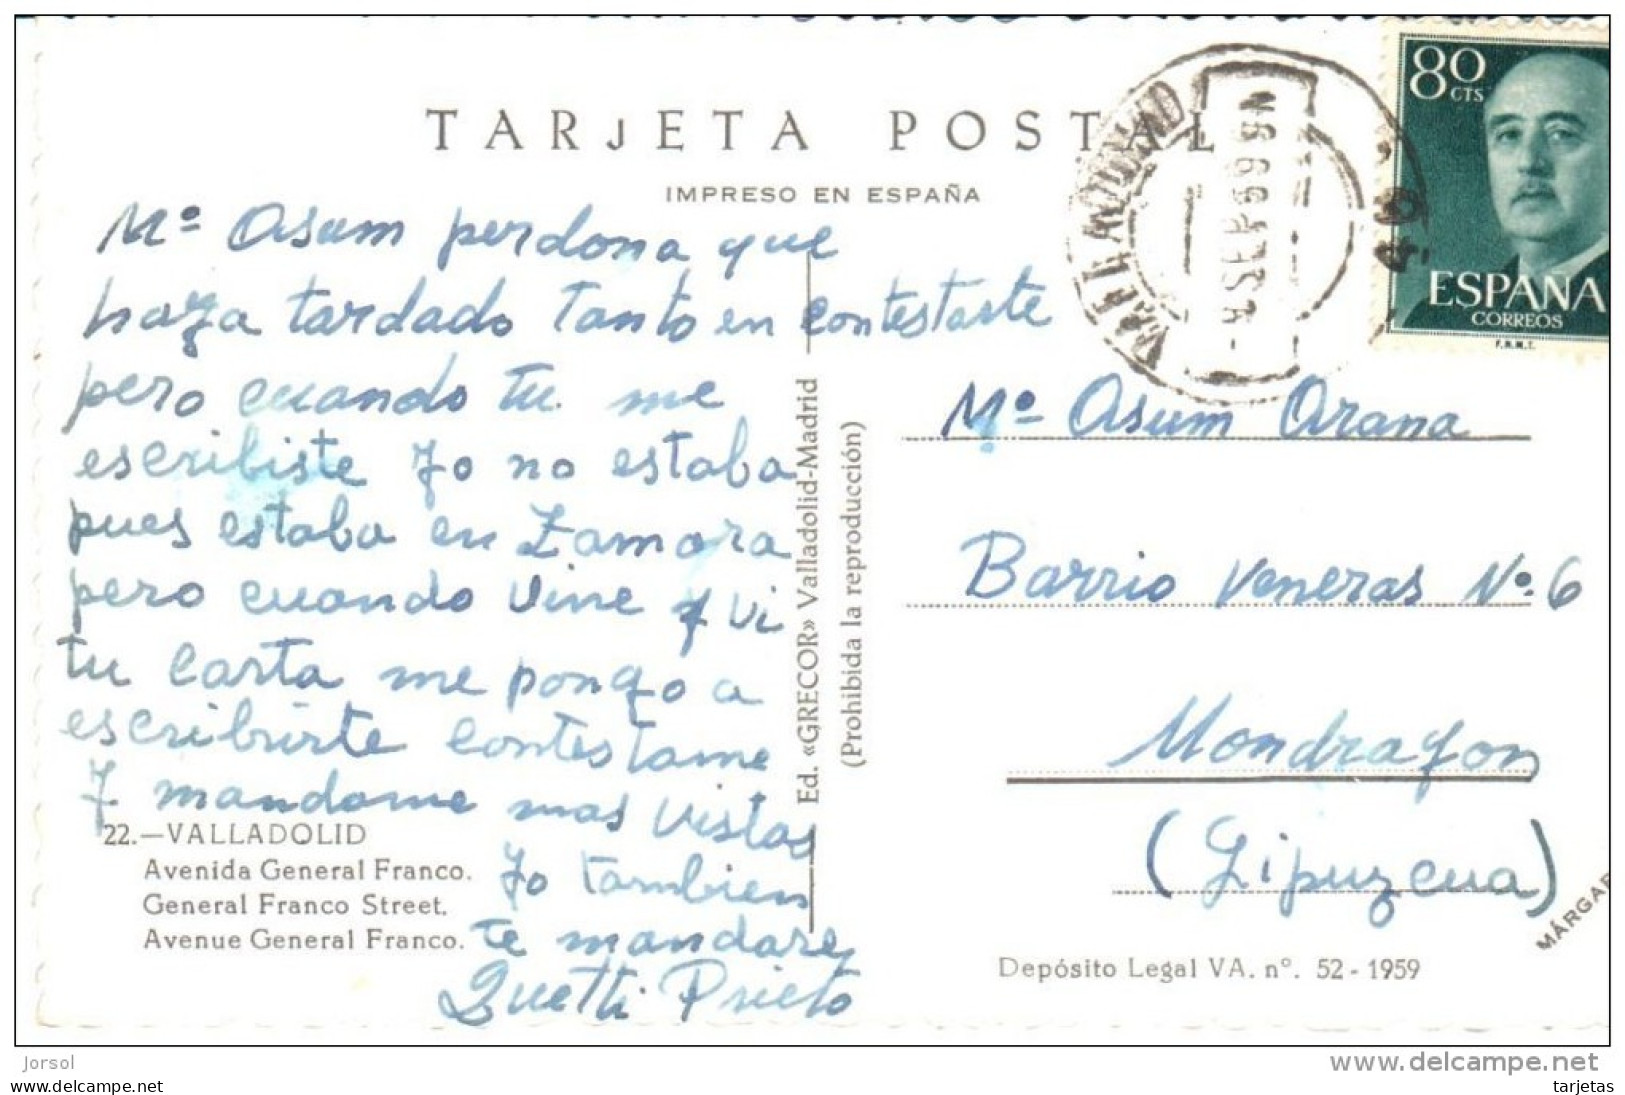 TARJETA POSTAL
IMPRESO EN ESPAÑA
Mª Asum perdona que
haya tardado tanto en contestarte
pero cuando tu me
escribiste yo no estaba
pues estaba en Zamora
pero cuando vine y vi
tu carta me pongo a
escribirte contestame
y mandame mas vistas
yo tambien
te mandare
Prieto
22.—VALLADOLID
Avenida General Franco.
General Franco Street.
Avenue General Franco.
Ed. «GRECOR» Valladolid-Madrid
(Prohibida la reproducción)
VALLADOLID
80
CTS
ESPAÑA
CORREOS
F.N.M.T.
Mª Asum Arana
Barrio Veneras Nº 6
Mondragon
(Gipuzcua)
Depósito Legal VA. nº. 52 - 1959
MÁRGAR
Jorsol
www.delcampe.net
www.delcampe.net
tarjetas